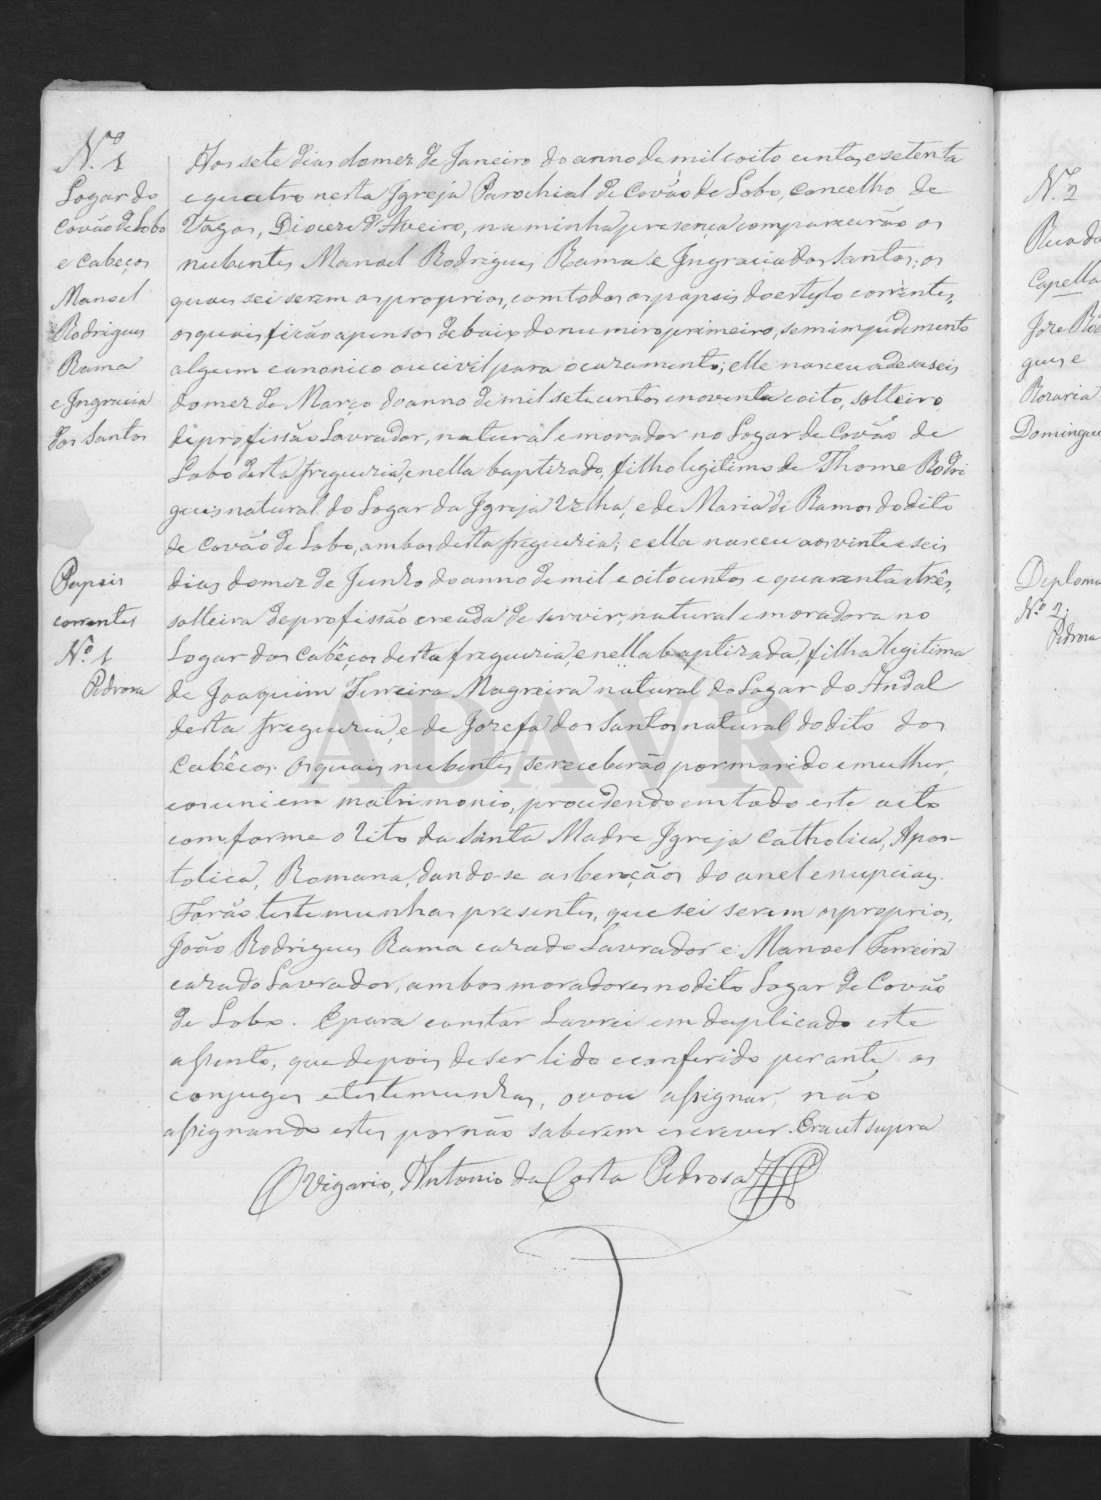 N.º 1
Logar do
Covão de Lobo
e Cabeços
Manoel
Rodrigues
Rama
e Ingracia
dos Santos
Papeis
correntes
N.º 1
Pedrosa
Aos sete dias do mez de Janeiro do anno de mil e oito centos e setenta
e quatro nesta Igreja Parochial de Covão de Lobo, concelho de
Vagos, Diocese d'Aveiro, na minha presença comparecerão os
nubentes Manoel Rodrigues Rama e Ingracia dos Santos; os
quaes sei serem os proprios, com todos os papeis do estylo correntes,
os quais ficão apensos debaixo do numero primeiro, sem impedimento
algum canonico ou civil para o cazamento; elle nasceu a dezaseis
do mez de Março do anno de mil sete centos e noventa e oito, solteiro
de profissão Lavrador, natural e morador no Logar de Covão de
Lobo desta freguezia, e nella baptizado, filho legitimo de Thome Rodri
gues natural do Logar da Igreja Velha, e de Maria de Ramos do dito
de Covão de Lobo, ambos desta freguezia; e ella nasceu aos vinte e seis
dias do mez de Junho do anno de mil e oito centos e quarenta e três,
solteira de profissão creada de servir, natural e moradora no
Logar dos Cabêços desta freguezia, e nella baptizada, filha legitima
de Joaquim Ferreira Magreira natural do Logar do Andal
desta freguezia, e de Jozefa dos Santos natural do dito dos
Cabêços. Os quais nubentes se receberão por marido e mulher,
e os uni em matrimonio, procedendo em todo este acto
comforme o Rito da Santa Madre Igreja Catholica, Apos-
tolica, Romana, dando-se as bençãos do anel e nupciaes.
Forão testemunhas presentes, que sei serem os proprios,
João Rodrigues Rama cazado Lavrador e Manoel Ferreira
cazado Lavrador, ambos moradores no dito Logar de Covão
de Lobo. E para constar Lavrei em duplicado este
assento, que depois de ser lido e conferido perante os
conjuges e testemunhas, o vou assignar, não
assignando estes por não saberem escrever. Era ut supra
O Vigario, Antonio da Costa Pedrosa
ADAVR
N.º 2
Rua da
Capella
Joze Ro
gues e
Rozaria
Domingues
N.º 2
Pedrosa